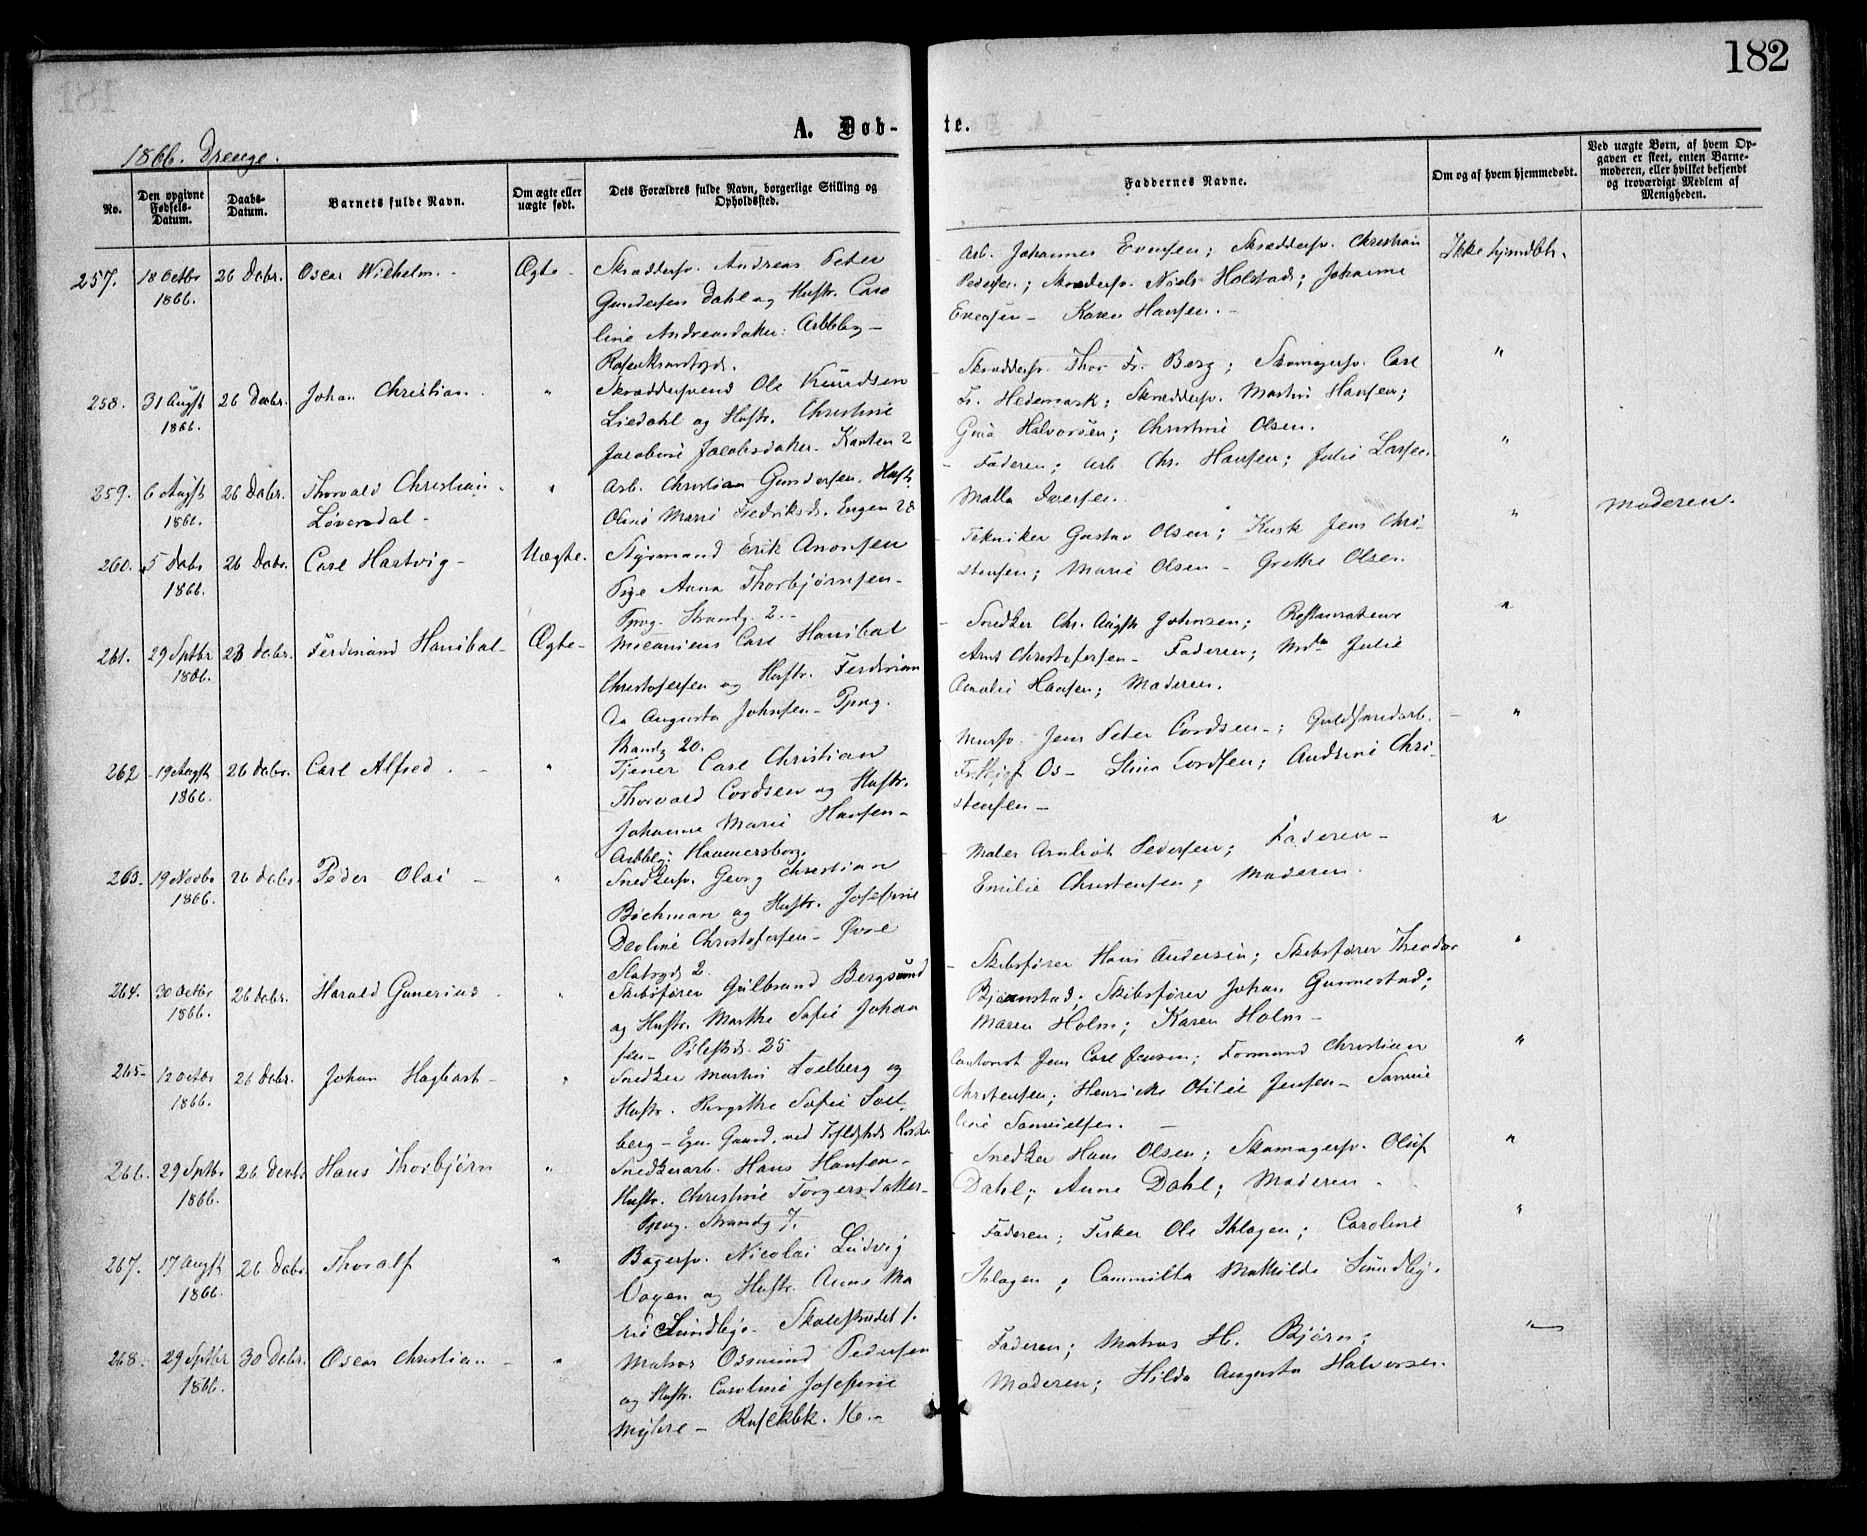 182
A. Døb-te.
1866. Drenge.
No.
Den opgivne Fødsels-Datum.
Daabs-Datum.
Barnets fulde Navn.
Om ægte eller uægte født.
Dets Forældres fulde Navn, borgerlige Stilling og Opholdssted.
Faddernes Navne.
Om og af hvem hjemmedøbt.
Ved uægte Børn, af hvem Opgaven er skeet, enten Barnemoderen, eller hvilket bekjendt og troværdigt Medlem af Menigheden.
257. 18 Octbr 1866. 26 Decbr. Oscar Wilhelm. Ægte
Skræddersv. Andreas Peter
Gundersen Dahl og Hustr. Caro
line Andreasdatter: Arbbbg
Arb. Johannes Evensen; Skræddersv. Christian
Pedersen; Skræddersv. Niels Holstad; Johanne
Evensen - Karen Hansen.
Ikke hjemdbt.
258. 31 Augst 1866. 26 Decbr. Johan Christian. "
Skræddersvend Ole Knudsen
Liedahl og Hustr. Christine
Jacobine Jacobsdatter. Kanten 2
Skræddersv. Thor Fr. Berg; Skomagersv. Carl
Fr. Hedemark; Skræddersv. Martin Hansen;
Gina Halvorsen; Christine Olsen.
"
259. 6 Augst 1866. 26 Decbr. Thorvald Christian Løversdal "
Arb. Christian Gundersen. Hustr.
Oline Marie Fredriksd. Engen 28
Faderen; Arb. Chr. Hansen; Julie Larsen.
Malla Iversen.
"
260. 5 Decbr 1866. 26 Decbr. Carl Hartvig Uægte.
Styrmand Erik Aronsen
Pige Anna Thorbjørnsen
Ppvg. Strandg 2.
Tekniker Gustav Olsen; Kusk Jens Chri-
stensen; Marie Olsen - Grethe Olsen.
"
Moderen.
261. 29 Septbr 1866. 28 Decbr. Ferdinand Hanibal Ægte
Mecanicus Carl Hanibal
Christofersen og Hustr. Ferdinan
da Augusta Johnsen - Ppvg.
Strandg 20.
Snedker Chr. Augst Johnsen; Restaurateur
Arnt Christofersen - Faderen; Mda Julie
Amalie Hansen; Moderen.
"
262 19 Augst 1866. 26 Decbr. Carl Alfred. "
Tjener Carl Christian
Thorvald Cordsen og Hustr.
Johanne Marie Hansen
Arbbbg: Hammersborg
Mursv. Jens Peter Cordsen; Guldsmedarb.
Os - Stina Cordsen; Andrine Chri-
stensen
"
263. 19 Novbr 1866. 26 Decbr. Peder Olai "
Snedkersv. Georg Christian
Bøckman og Hustr. Josefine
Deoline Christofersen - Øvre
Slotsgd 2.
Maler Arnliot Pedersen; Faderen
Emilie Christensen; Moderen.
"
264. 30 Octbr 1866. 26 Decbr. Harald Gunerius "
Skibsfører Gulbrand Bergsund
og Hustr. Marthe Sofie Johan
sen - Pilestd. 25
Skibsfører Hans Andersen; Skibsfører Theodor
Bjønstad; Skibsfører Johan Gunnestad;
Maren Holm; Karen Holm
"
265 12 Octbr 1866. 26 Decbr. Johan Hagbart "
Snedker Martin Solberg og
Hustr. Birgitte Sofie Sol
berg - Egen Gaard, ved
Contorist Jens Carl Jensen; Formand Christian
Christensen; Henricke Otilie Jensen - Samue
line Samuelsen.
"
266. 29 Septbr 1866. 26 Decbr Hans Thorbjørn "
Snedkerarb. Hans Hansen
Hustr. Christine Torgersdatter
Ppvg. Strandg 7.
Snedker Hans Olsen; Skomagersv. Oluf
Dahl; Anne Dahl; Moderen
"
267. 17 Augst 1866. 26 Decbr. Thoralf "
Bagersv. Nicolai Ludvig
og Hustr. Anne Ma
rie Sundbye. Skolestrædet 1.
Faderen; Fisker Ole
Caroline
Cammilla Mathilde Sundby.
"
268. 29 Septbr 1866. 30 Decbr. Oscar Christian "
Matros Osmund Pedersen
og Hustr. Caroline Josefine
Myhre
Faderen; Matros H. Bjørn;
Moderen; Hilda Augusta Halvorsen.
"